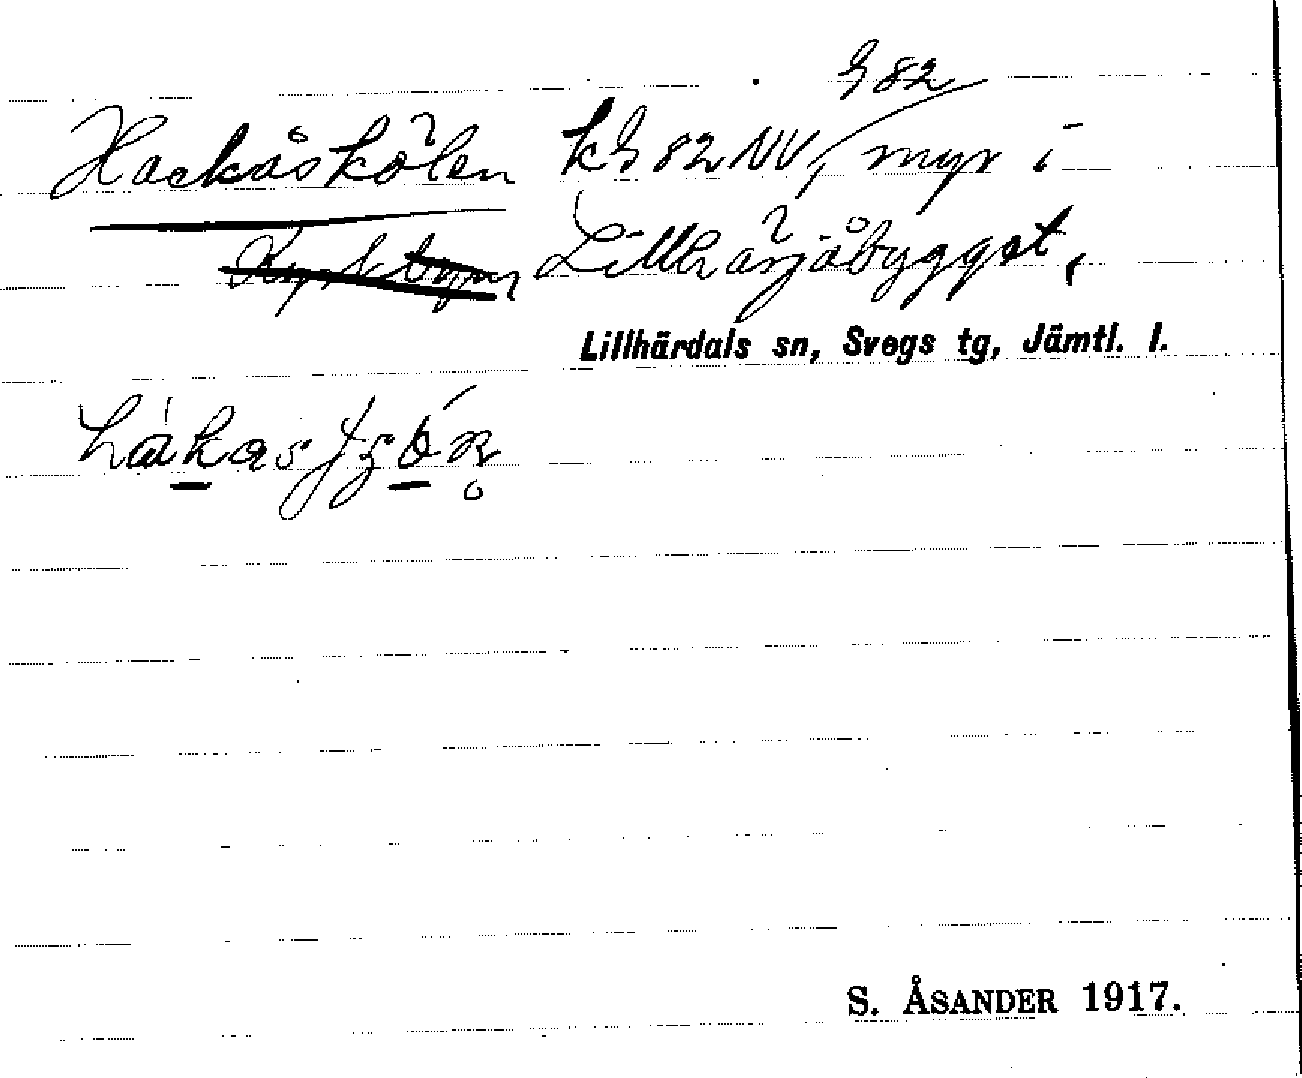 382
Hackåskölen k382NV, myr i
Lillhärjåbygget,
Lillhärdals sn, Svegs tg, Jämtl. l.
S. ÅSANDER 1917.